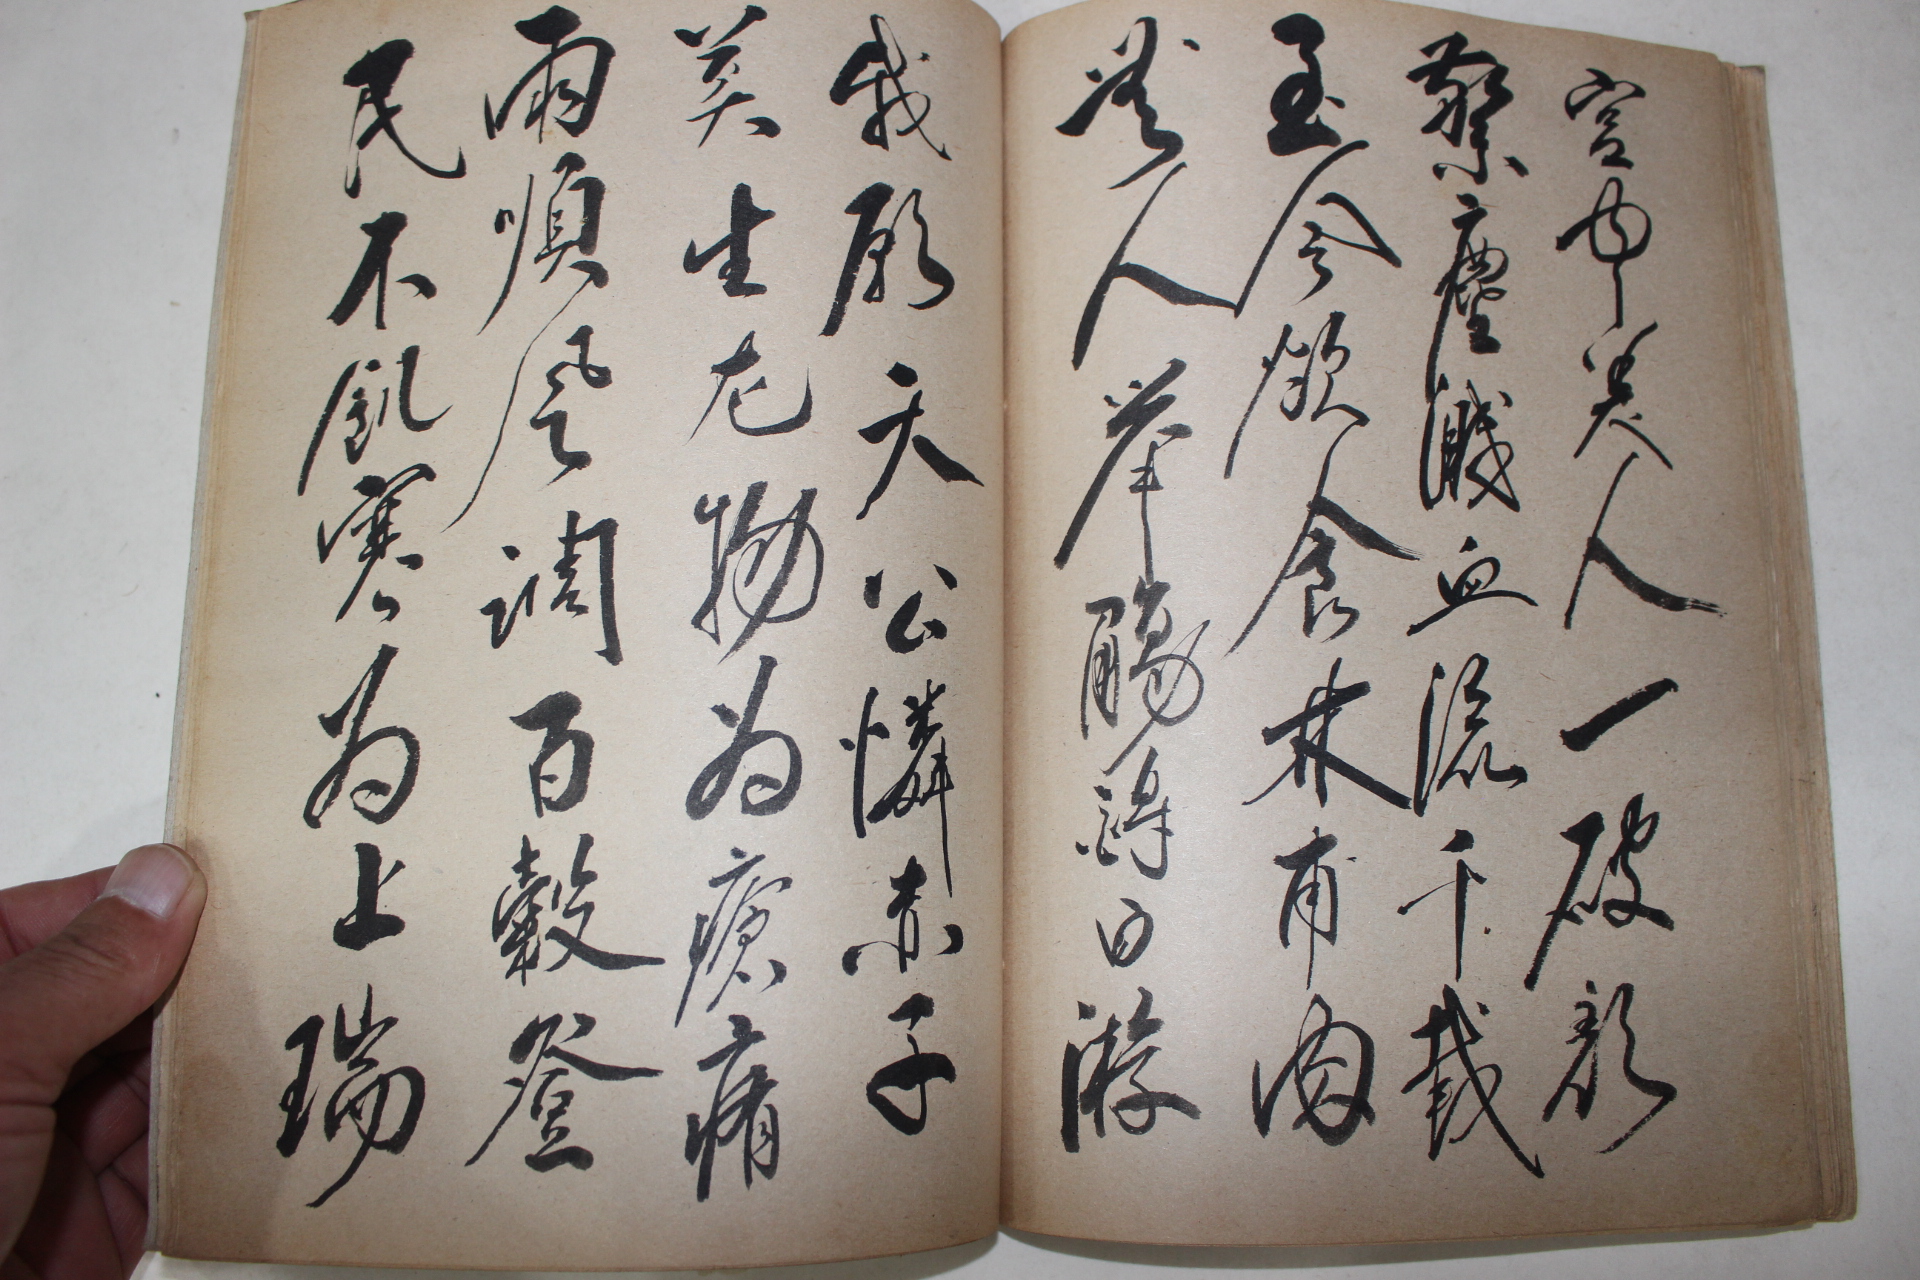 宮中美人一破顏
驚塵濺血流千載
至今欲食林甫肉
無人舉觴酹白游
我願天公憐赤子
莫生尤物為瘡痏
雨順風調百穀登
民不飢寒為上瑞